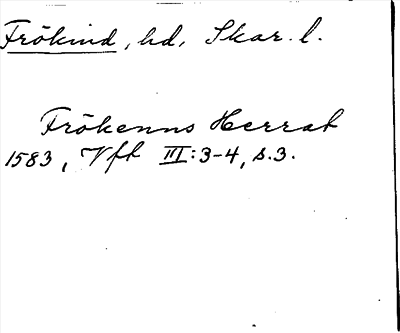 Frökind, hd, Skar. l.
Frökenns Herrat
1583, Vft III:3-4, s.3.